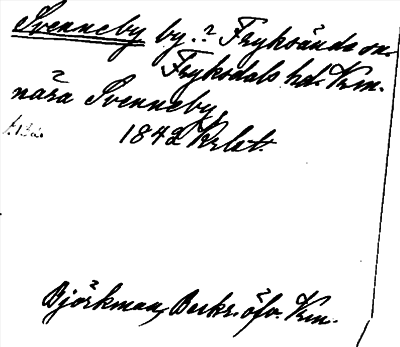 Svenneby by.? Fryksände sn.
Fryksdals hd. Vrm.
nära Svenneby
1842 Krlst.
Björkman, Beskr. öfv. Vrm.